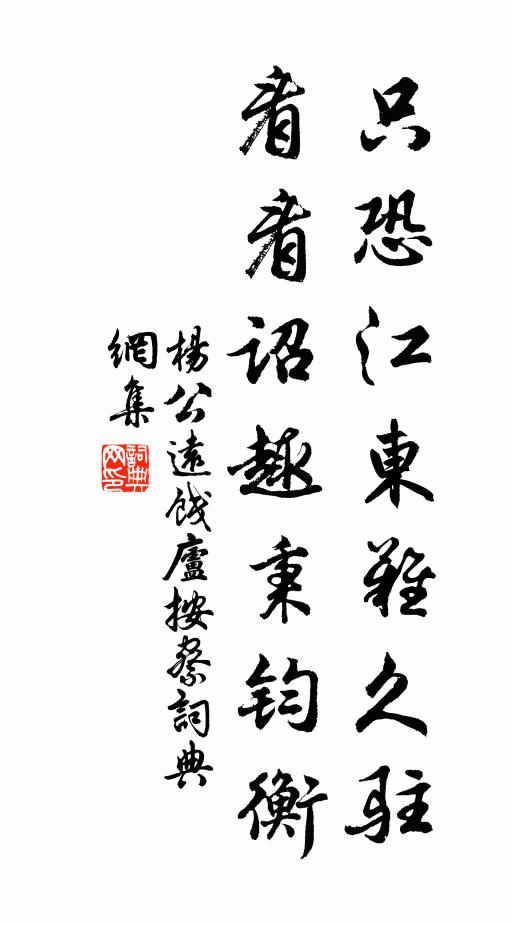 只恐江東難久駐
看看詔趣秉鈞衡
楊公遠餞廬按察詞典
網集
詞典網印